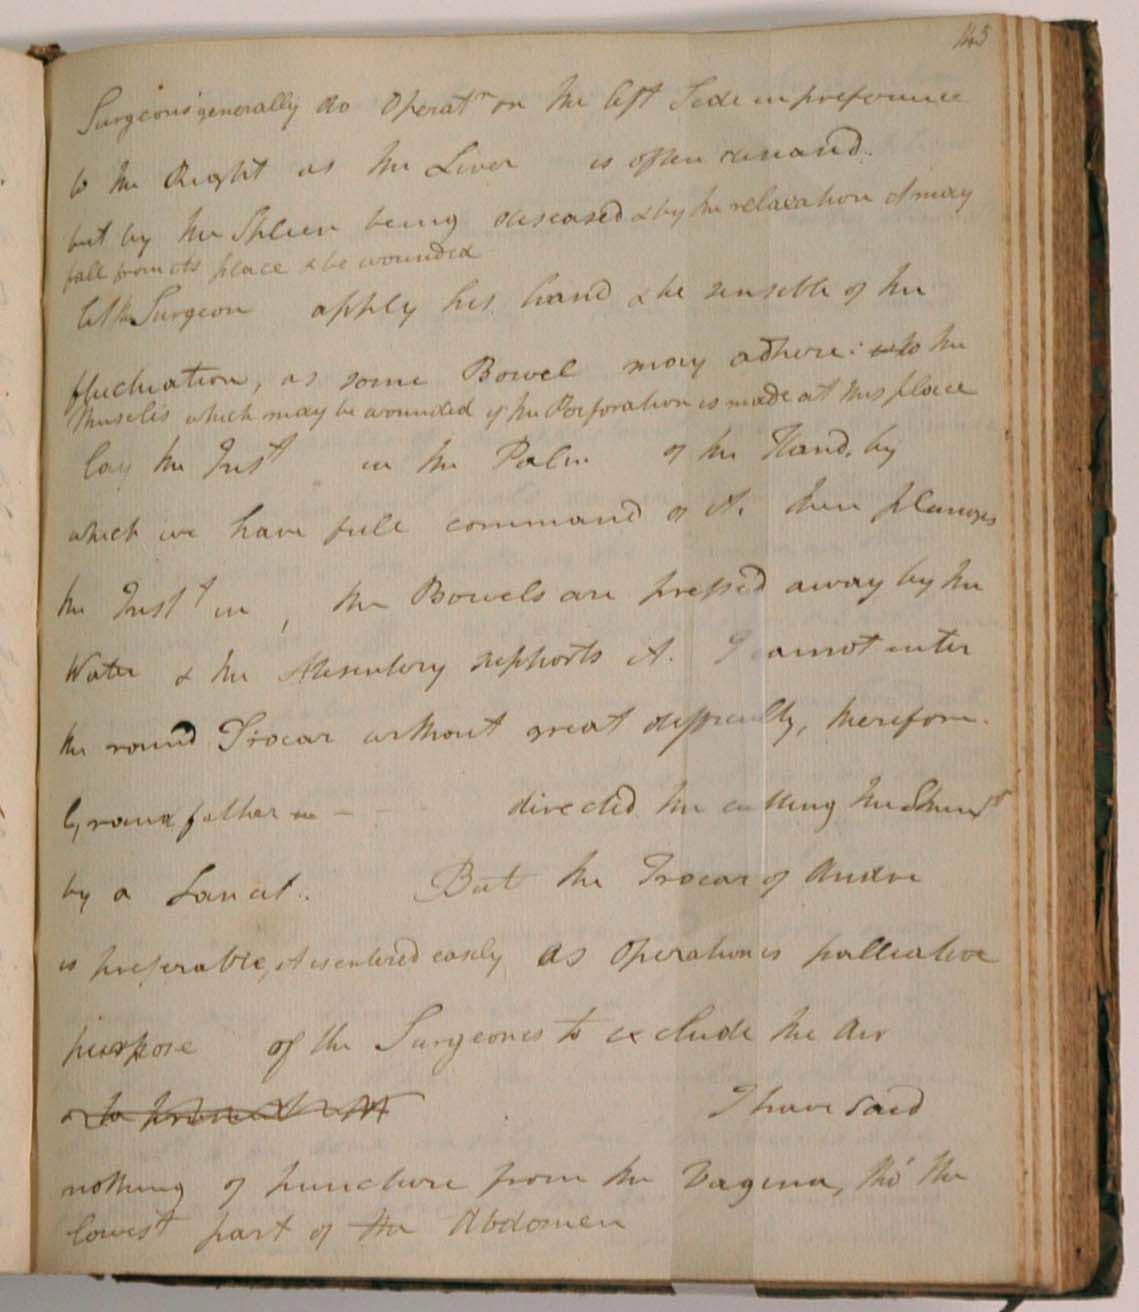 143
Surgeons generally do Operatn on the left Side in preference
to the Right as the Liver is often
but by the Spleen being diseased & by the relaxation it may
fall from its place & be wounded
let the Surgeon apply his hand & be sensible of the
fluctuation, as some Bowel may adhere to the
Muscles which may be wounded if the Perforation is made at this place
lay the Inst in the Palm of the Hand, by
which we have full command of it. then plunges
the Instt in, the Bowels are pressed away by the
Water & the Mesentery supports it. I cannot enter
the round Trocar without great difficulty, therefore
Grandfather directed the cutting the
by a Lancet. But the Trocar of Andre
is preferable, it is entered easily As Operation is palliative
purpose of the Surgeon is to exclude the Air
I have said
nothing of puncture from the Vagina, tho' the
lowest part of the Abdomen